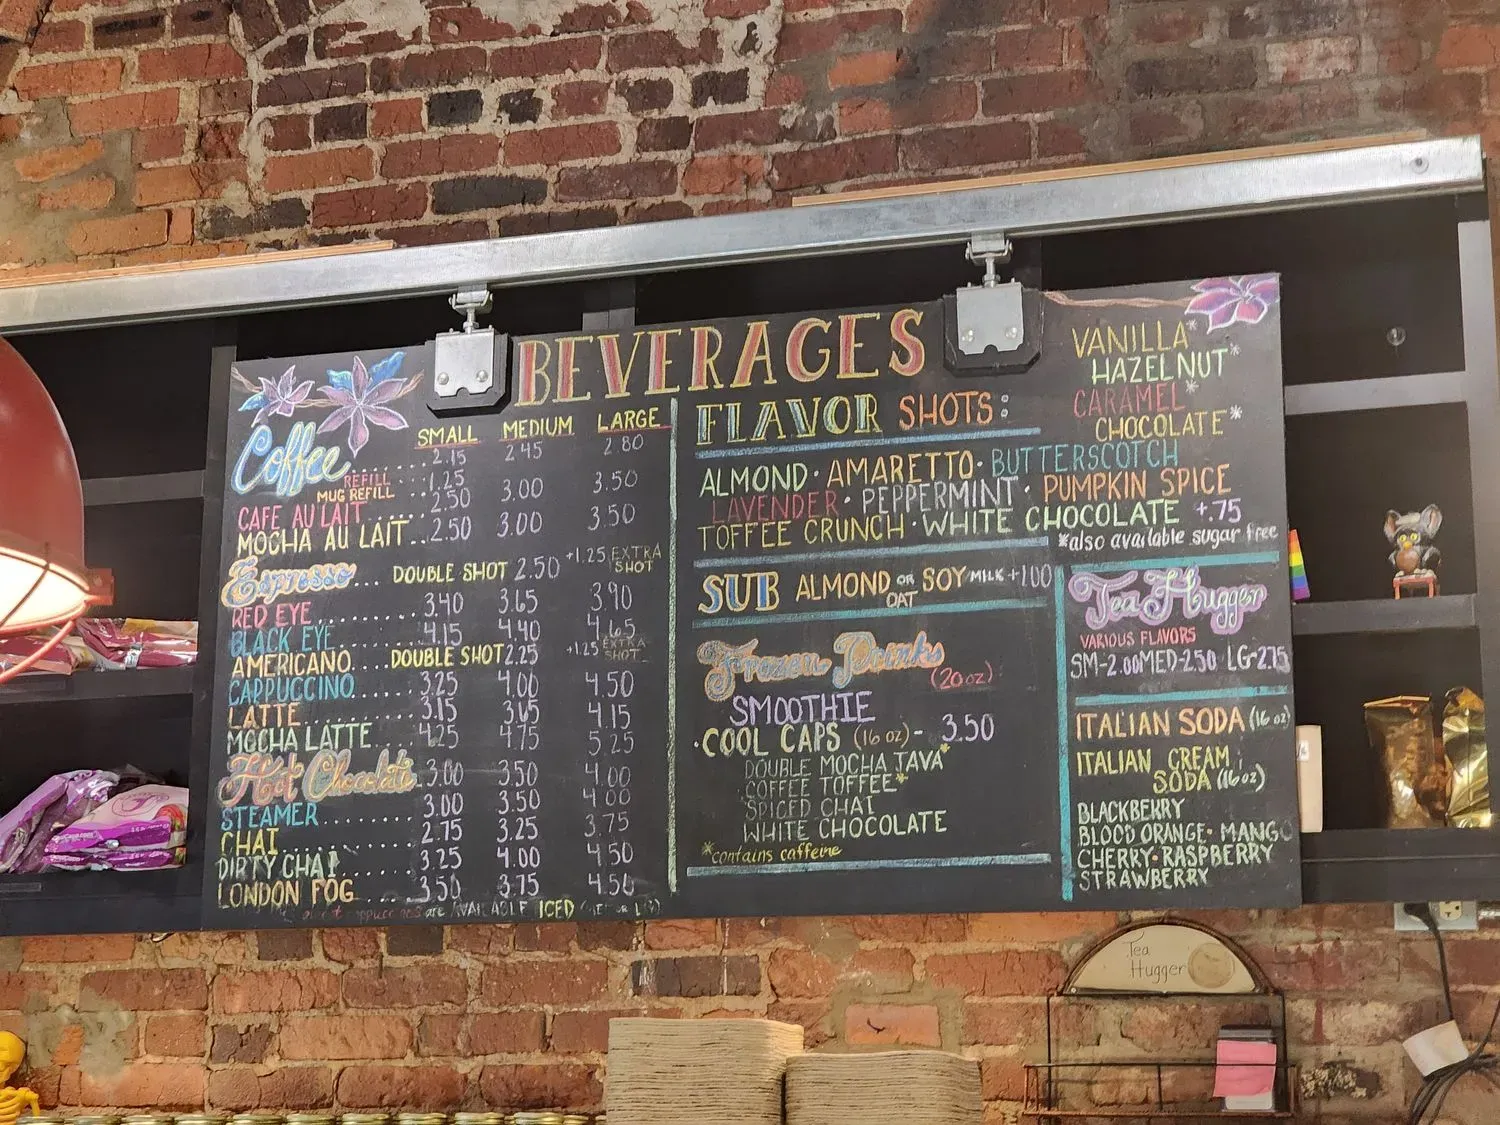 BEVERAGES
SMALL MEDIUM LARGE
Coffee ..... 2.15 2.45 2.80
REFILL .. 1.25
MUG REFILL
CAFE AU LAIT .. 2.50 3.00 3.50
MOCHA AU LAIT.. 2.50 3.00 3.50
Espresso... DOUBLE SHOT 2.50 +1.25 EXTRA SHOT
RED EYE ........ 3.40 3.65 3.90
BLACK EYE ...... 4.15 4.40 4.65
AMERICANO.... DOUBLE SHOT 2.25 +1.25 EXTRA SHOT
CAPPUCCINO...... 3.25 4.00 4.50
LATTE........... 3.15 3.65 4.15
MOCHA LATTE.... 4.25 4.75 5.25
Hot Chocolate. 3.00 3.50 4.00
STEAMER........ 3.00 3.50 4.00
CHAI........... 2.75 3.25 3.75
DIRTY CHAI..... 3.25 4.00 4.50
LONDON FOG.... 3.50 3.75 4.50
are AVAILABLE ICED
FLAVOR SHOTS:
VANILLA*
HAZELNUT*
CARAMEL*
CHOCOLATE*
ALMOND · AMARETTO · BUTTERSCOTCH
LAVENDER · PEPPERMINT · PUMPKIN SPICE
TOFFEE CRUNCH · WHITE CHOCOLATE +.75
*also available sugar free
SUB ALMOND OR OAT SOY MILK +1.00
Frozen Drinks
(20 oz)
SMOOTHIE
·COOL CAPS (16 oz)- 3.50
DOUBLE MOCHA JAVA*
COFFEE TOFFEE*
SPICED CHAI
WHITE CHOCOLATE
*contains caffeine
Tea Hugger
VARIOUS FLAVORS
SM-2.00 MED-2.50 LG-2.75
ITALIAN SODA (16 oz)
ITALIAN CREAM
SODA (16 oz)
BLACKBERRY
BLOOD ORANGE · MANGO
CHERRY · RASPBERRY
STRAWBERRY
Tea
Hugger